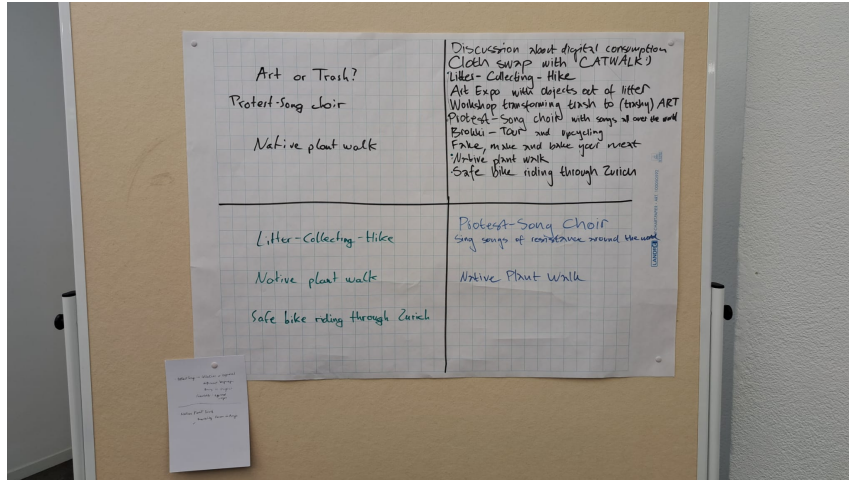 Art or Trash?
Protest-Song choir
Native plant walk
Discussion about digital consumption
Cloth swap with CATWALK :)
·Litter-Collecting-Hike
Art Expo with objects out of litter
Workshop transforming trash to (trashy) ART
Protest-Song choir with songs all over the world
Brokki-Tour and upcycling
Fake, make and bake your meat
·Native plant walk
·Safe bike riding through Zurich
Litter-Collecting-Hike
Native plant walk
Safe bike riding through Zurich
Protest-Song Choir
Sing songs of resistance around the world
Native Plant Walk